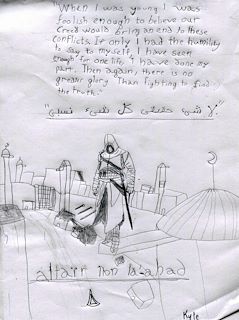 "When I was young I was
foolish enough to believe our
Creed would bring an end to these
conflicts. If only I had the humility
to say to myself, I have seen
enough for one life, I have done my
part. Then again, there is no
greater glory Than fighting to find
the truth."
altair ibn la-ahad
Kyle